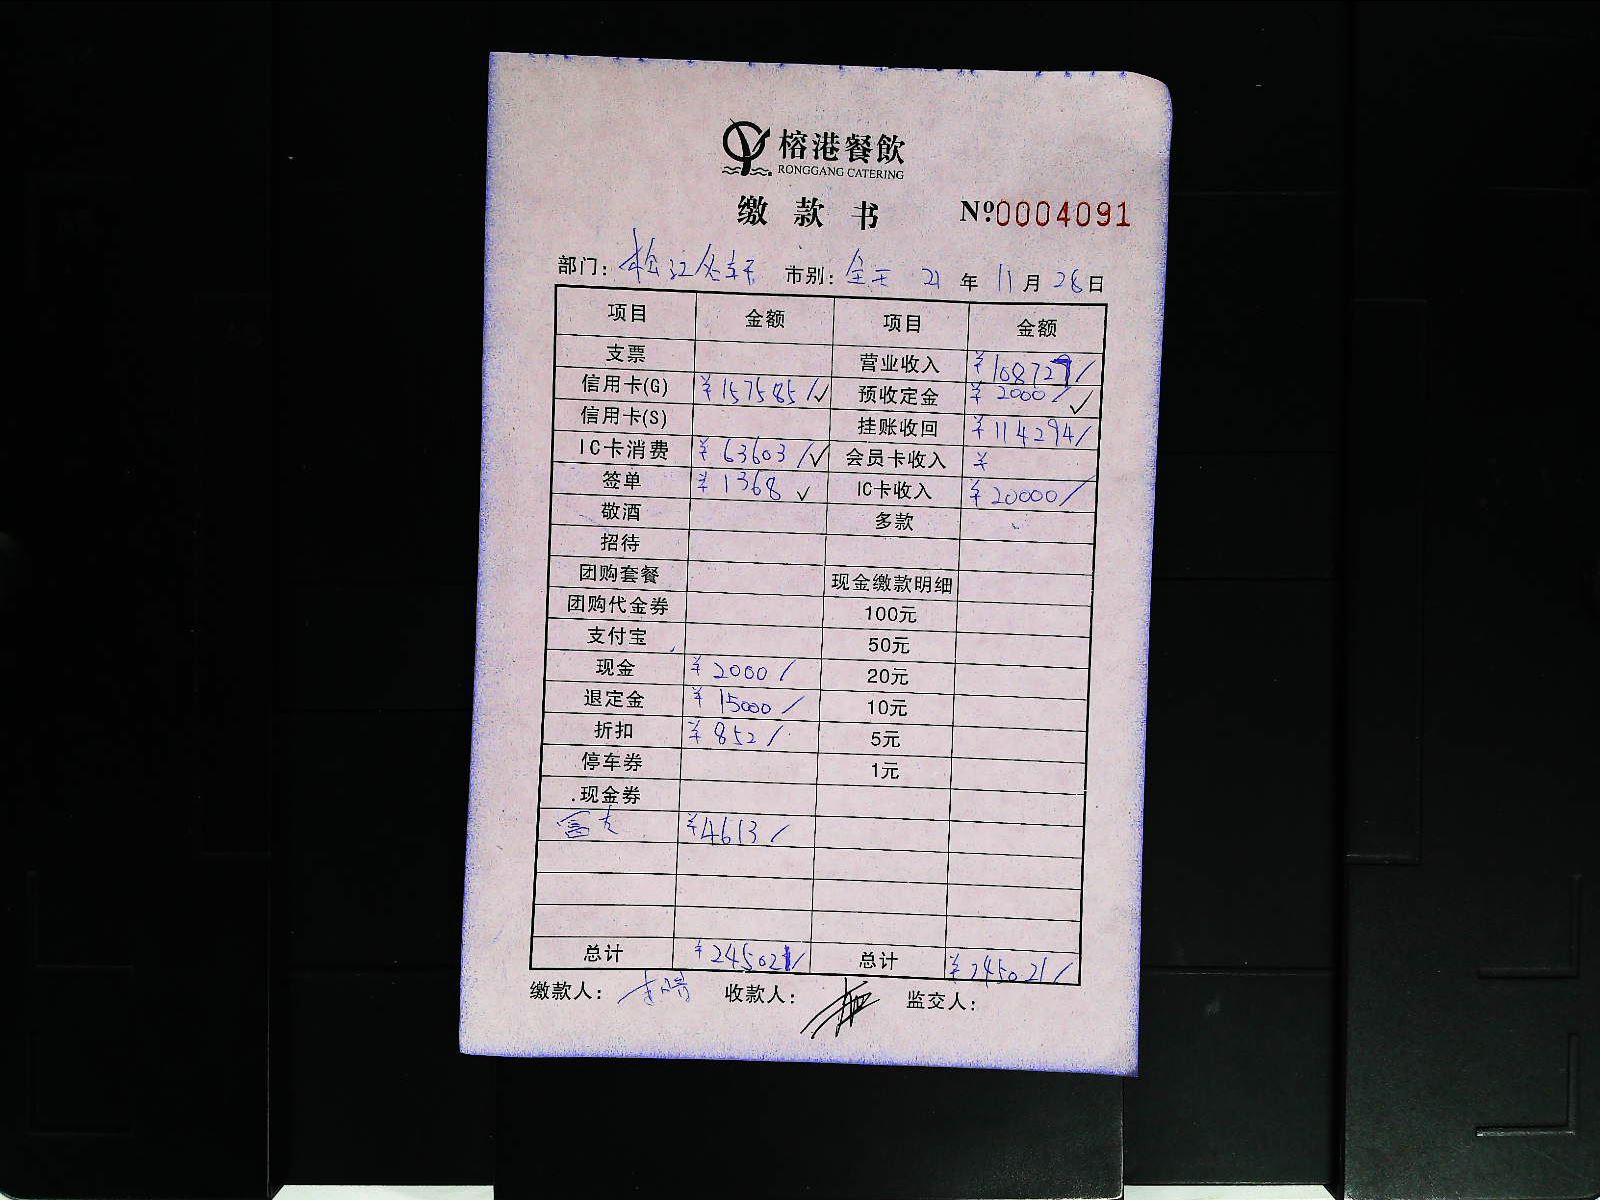 榕港餐飲
RONGGANG CATERING
缴款书 Nº0004091
部门: 松江 市别: 全天 21年11月28日
项目 金额 项目 金额
支票 营业收入 ¥108727/
信用卡(G) ¥157585/✓ 预收定金 ¥2000/✓
信用卡(S) 挂账收回 ¥114294/
IC卡消费 ¥63603/✓ 会员卡收入 ¥
签单 ¥1368✓ IC卡收入 ¥20000/
敬酒 多款
招待
团购套餐 现金缴款明细
团购代金券 100元
支付宝 50元
现金 ¥2000/ 20元
退定金 ¥15000/ 10元
折扣 ¥852/ 5元
停车券 1元
.现金券
富友 ¥4613/
总计 ¥245021/ 总计 ¥245021/
缴款人: 收款人: 监交人: